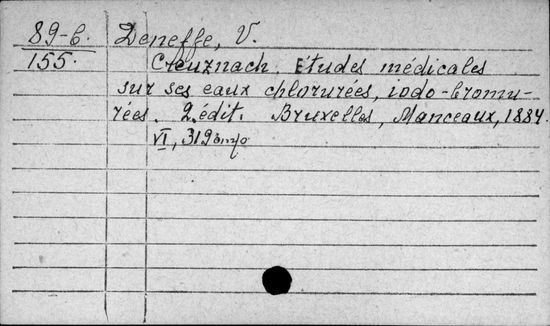 89-6. Deneffe, V.
155. Creuznach. Études médicales
sur ses eaux chlorurées, iodo-bromu-
rées. 2. édit. Bruxelles, Manceaux, 1884.
VI, 319